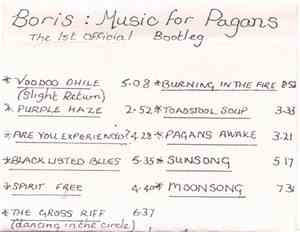 Boris : Music for Pagans
The 1st Official Bootleg
* VOODOO CHILE 5.08 * BURNING IN THE FIRE
(Slight Return)
* PURPLE HAZE 2.52 * TOADSTOOL SOUP 3.33
* ARE YOU EXPERIENCED? 4.28 * PAGANS AWAKE 3.21
* BLACK LISTED BLUES 5.35 * SUNSONG 5.17
* SPIRIT FREE 4.40 * MOONSONG
* THE GROSS RIFF 6.37
(dancing in the circle)